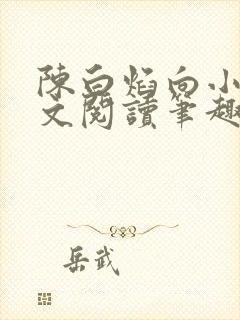 陳白焰向小
文閱讀筆趣
岳武